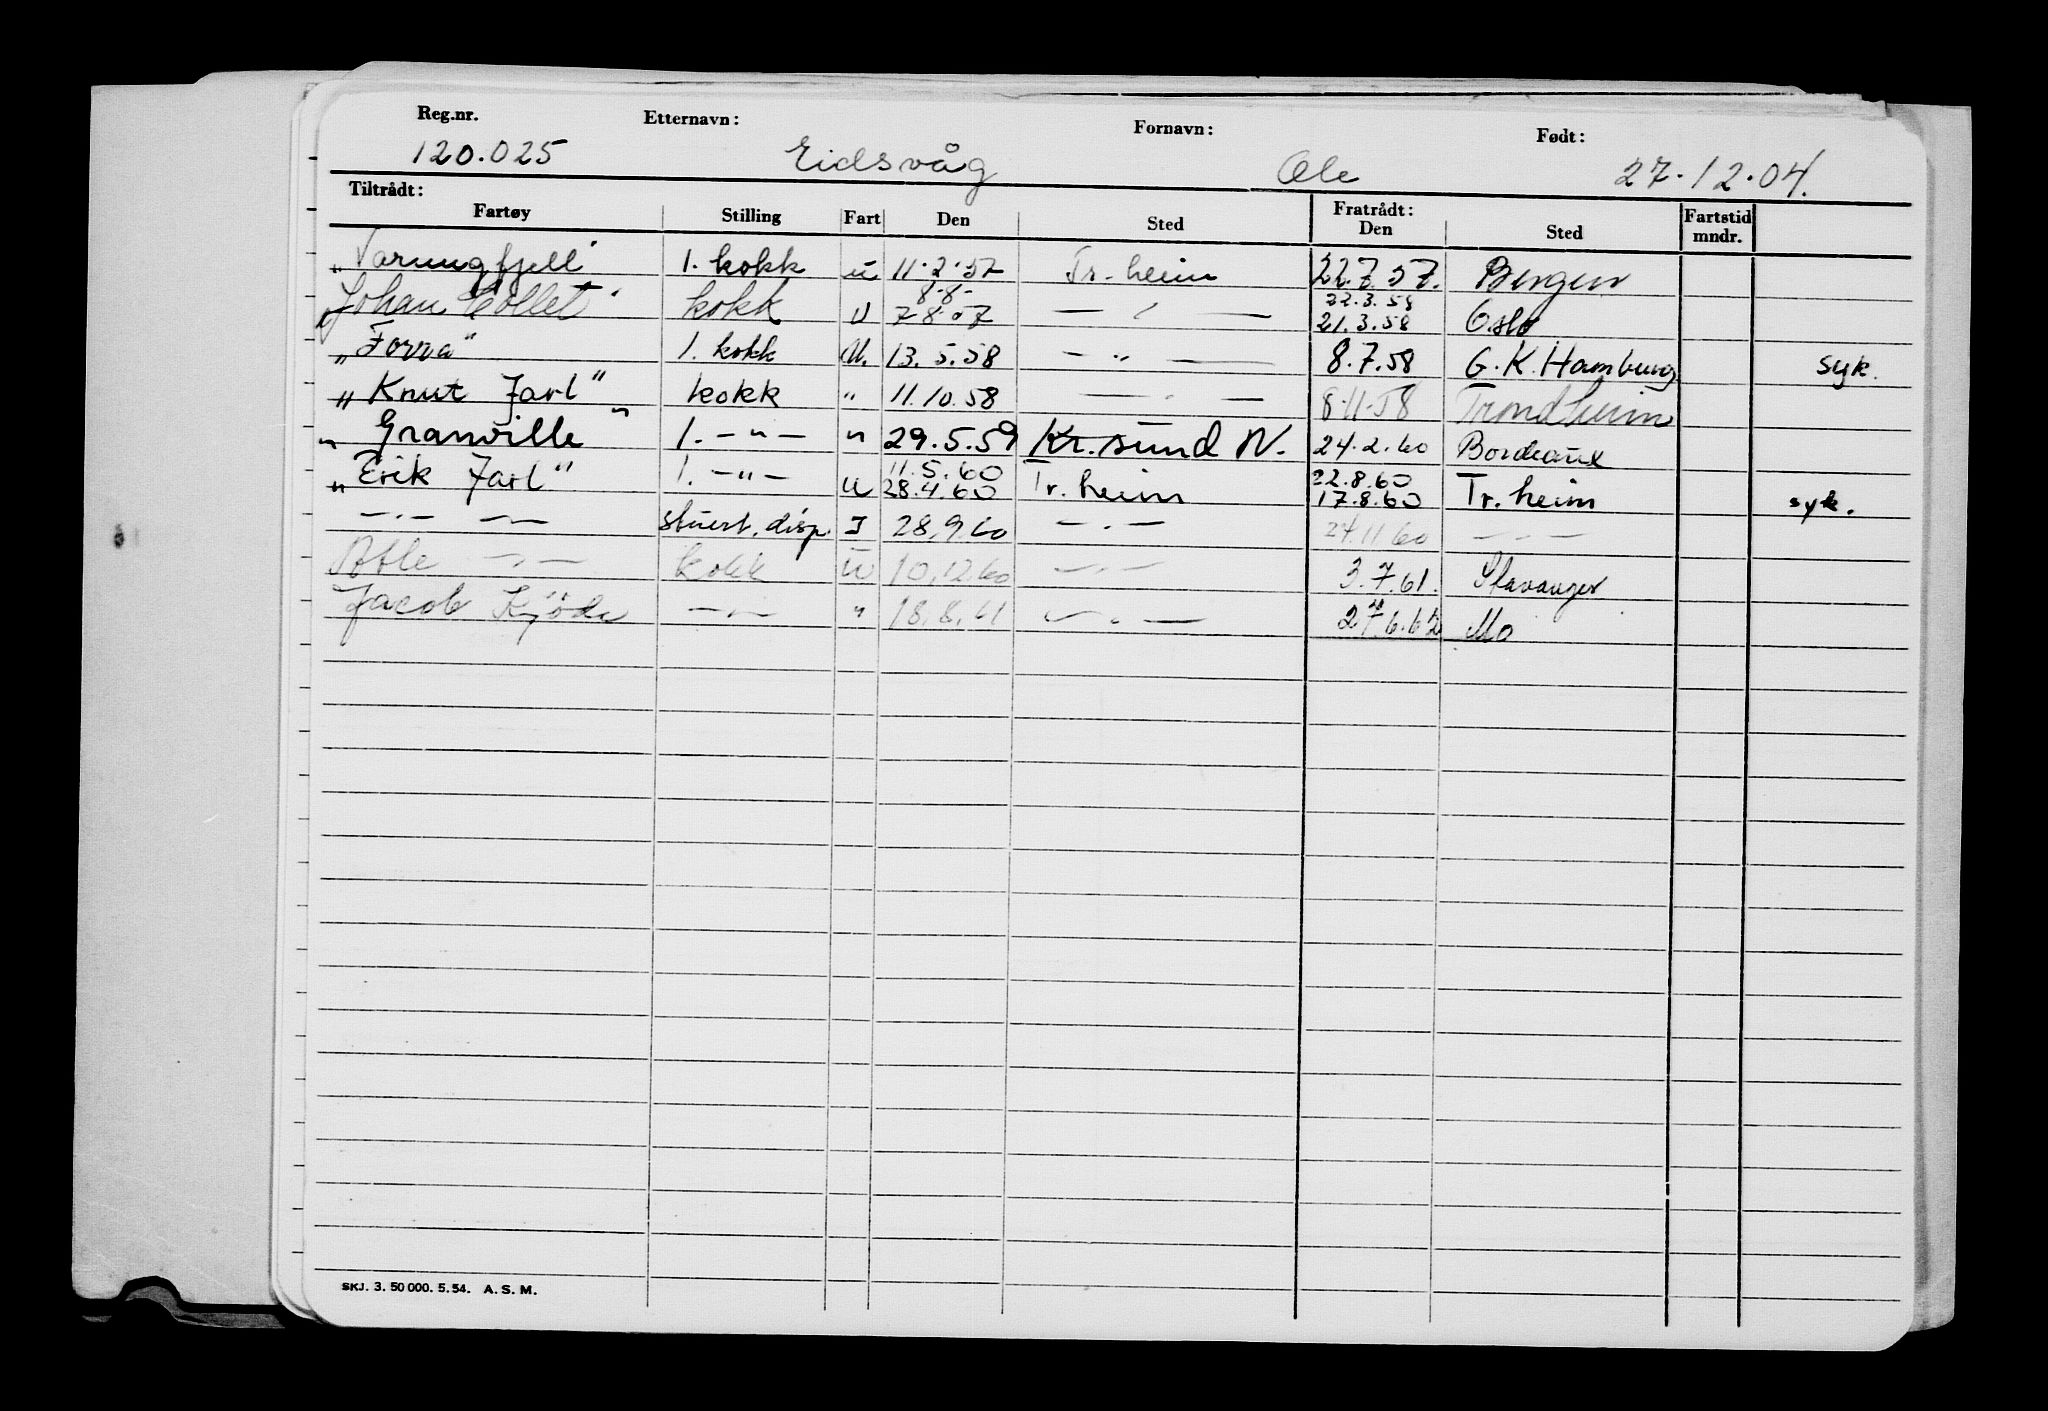 Reg.nr. Etternavn: Fornavn: Født:
120.025 Eidsvåg Ole 27.12.04.
Tiltrådt: Fratrådt:
Fartøy Stilling Fart Den Sted Den Sted Fartstid mndr.
„Varungfjell" 1. kokk u 11.2.57 Tr.heim 22.7.57. Bergen
8-8- 22.3.58
„Johan Collet" kokk U 7 8.57 — " — 21.3.58 Oslo
„Forra" 1. kokk U. 13.5.58 — " — 8.7.58 G.K.Hamburg syk.
„Knut Jarl" kokk " 11.10.58 — " — 8.11.58 Trondheim
„Granville" 1. — " — " 29.5.59 Kr.sund N. 24.2.60 Bordeaux
11.5.60 22.8.60
„Erik Jarl" 1. — " — U 28.4.60 Tr.heim 17.8.60 Tr.heim syk.
— " — — stuert.disp. I 28.9.60 — " — 27.11.60 — " —
Atle — " — kokk U 10.12.60 — " — 3.7.61. Stavanger
Jacob Kjöde — " — " 18.8.61 — " — 27.6.62 Mo
SKJ. 3. 50 000. 5. 54. A. S. M.